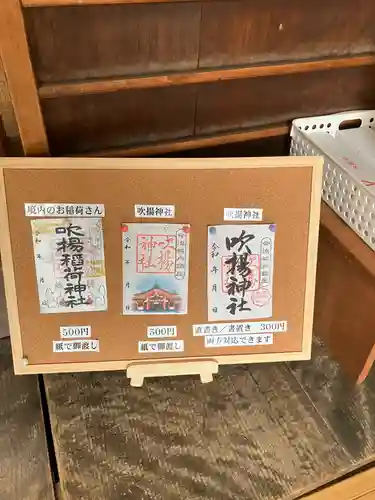 境内のお稲荷さん
令和 年 月 日
吹揚稲荷神社
500円
紙で御渡し
吹揚神社
令和 年 月 日
吹揚
神社
500円
紙で御渡し
吹揚神社
令和 年 月 日
吹揚神社
直書き/書置き 300円
両方対応できます